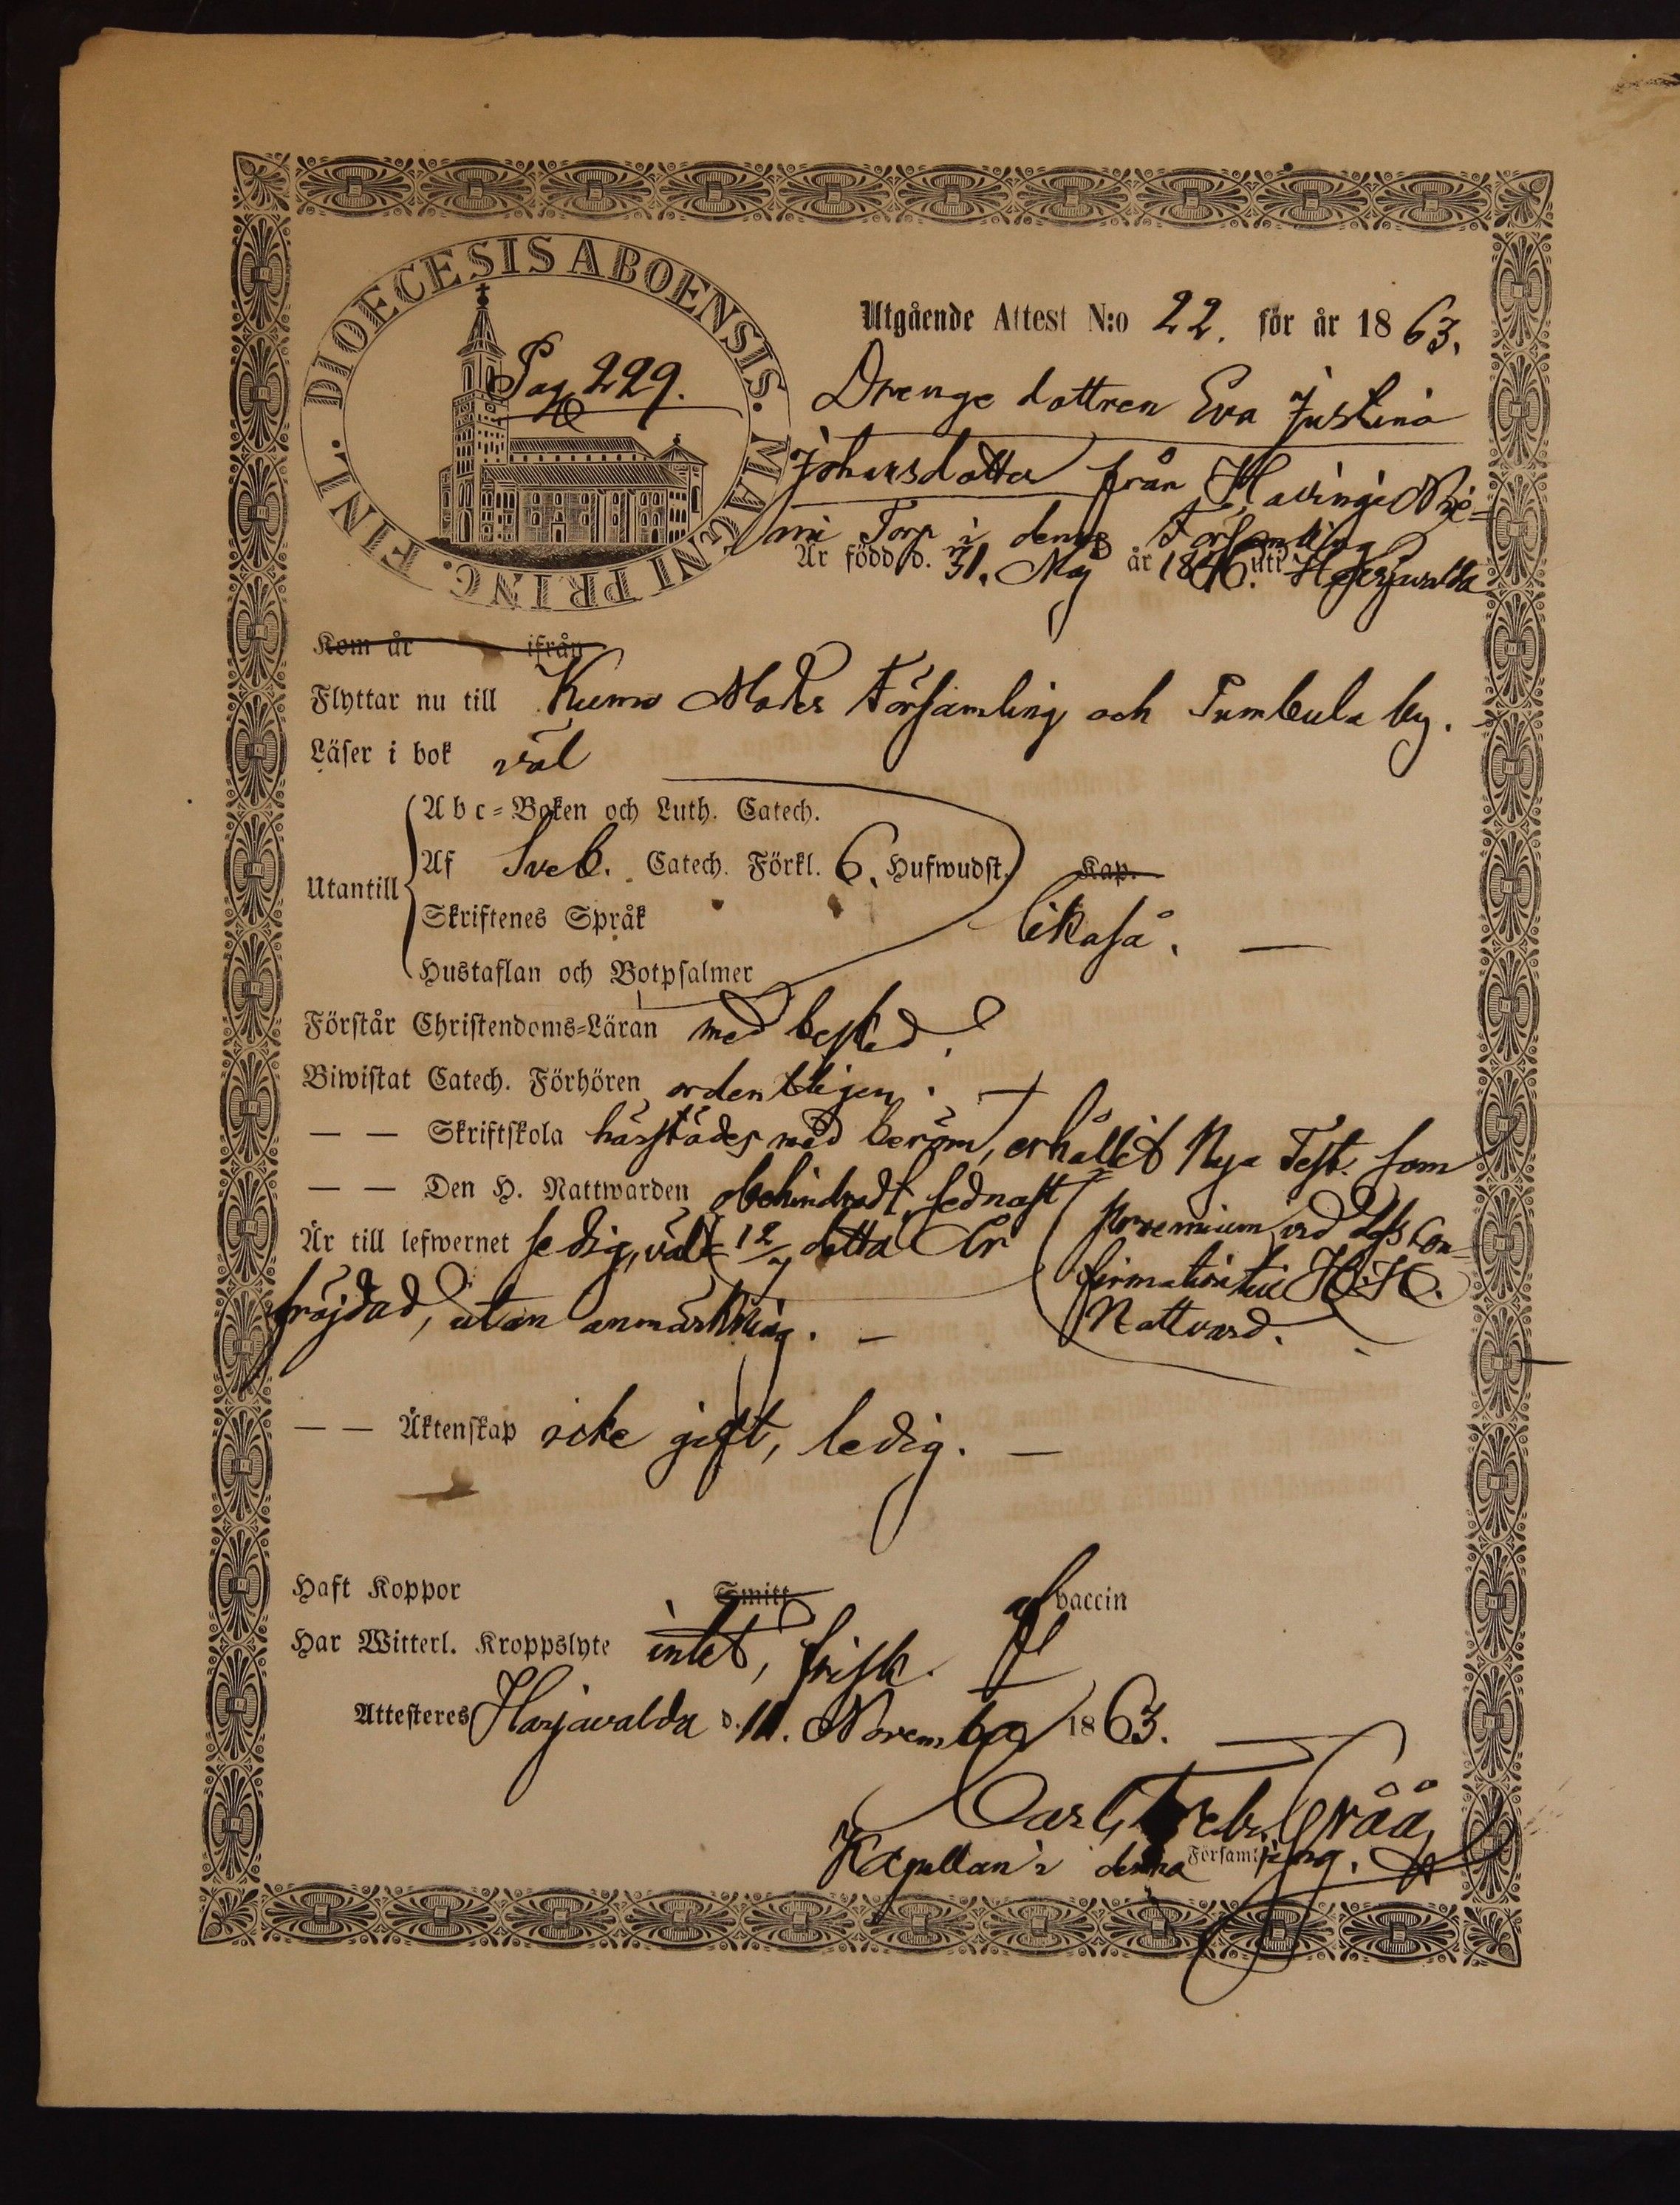 DIOECESIS ABOENSIS. MAGNI PRINC. FINL.
Pag. 229.
Utgående Attest N:o 22. för år 1863.
Drenge dottren Eva Justina
Johansdotter från Havingi Nie=
mi Torp i denna Församling
Är född d. 31. Maj år 1846. uti Harjavalda
Kom år ifrån
Flyttar nu till Kumo Moder Församling och Pumbula by.
Läser i bok väl
Utantill
Abc=Boken och Luth. Catech.
Af Sveb. Catech. Förkl. 6. Hufwudst. Kap.
Skriftenes Språk likaså. —
Hustaflan och Botpsalmer
Förstår Christendoms=Läran med besked.
Biwistat Catech. Förhören ordentligen. —
— — Skriftskola härstädes med beröm, erhållit Nya Test. som
— — Den H. Nattwarden obehindradt, sednast
præmium vid dess Con=
Är till lefwernet sedig, väl 12/7 detta År
firmation till H. H.
fräjdad, utan anmärkning. —
Nattvard.
— — Äktenskap icke gift, ledig. —
Haft Koppor Smitt af vaccin
Har Witterl. Kroppslyte intet, frisk.
Attesteres Harjavalda d. 11. November 1863.
Carl Fredr. Gråå
Kapellan i denna Församling.